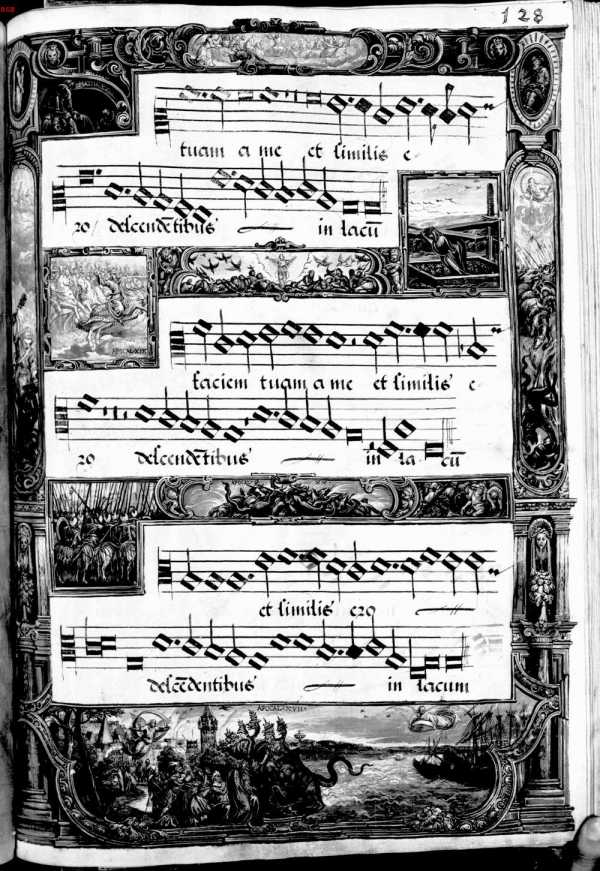 128
tuam a me et similis e
ro descendētibus in lacū
faciem tuam a me et similis e
ro descendētibus in la cū
et similis ero
descēdentibus in lacum
APOCAL·XVII·